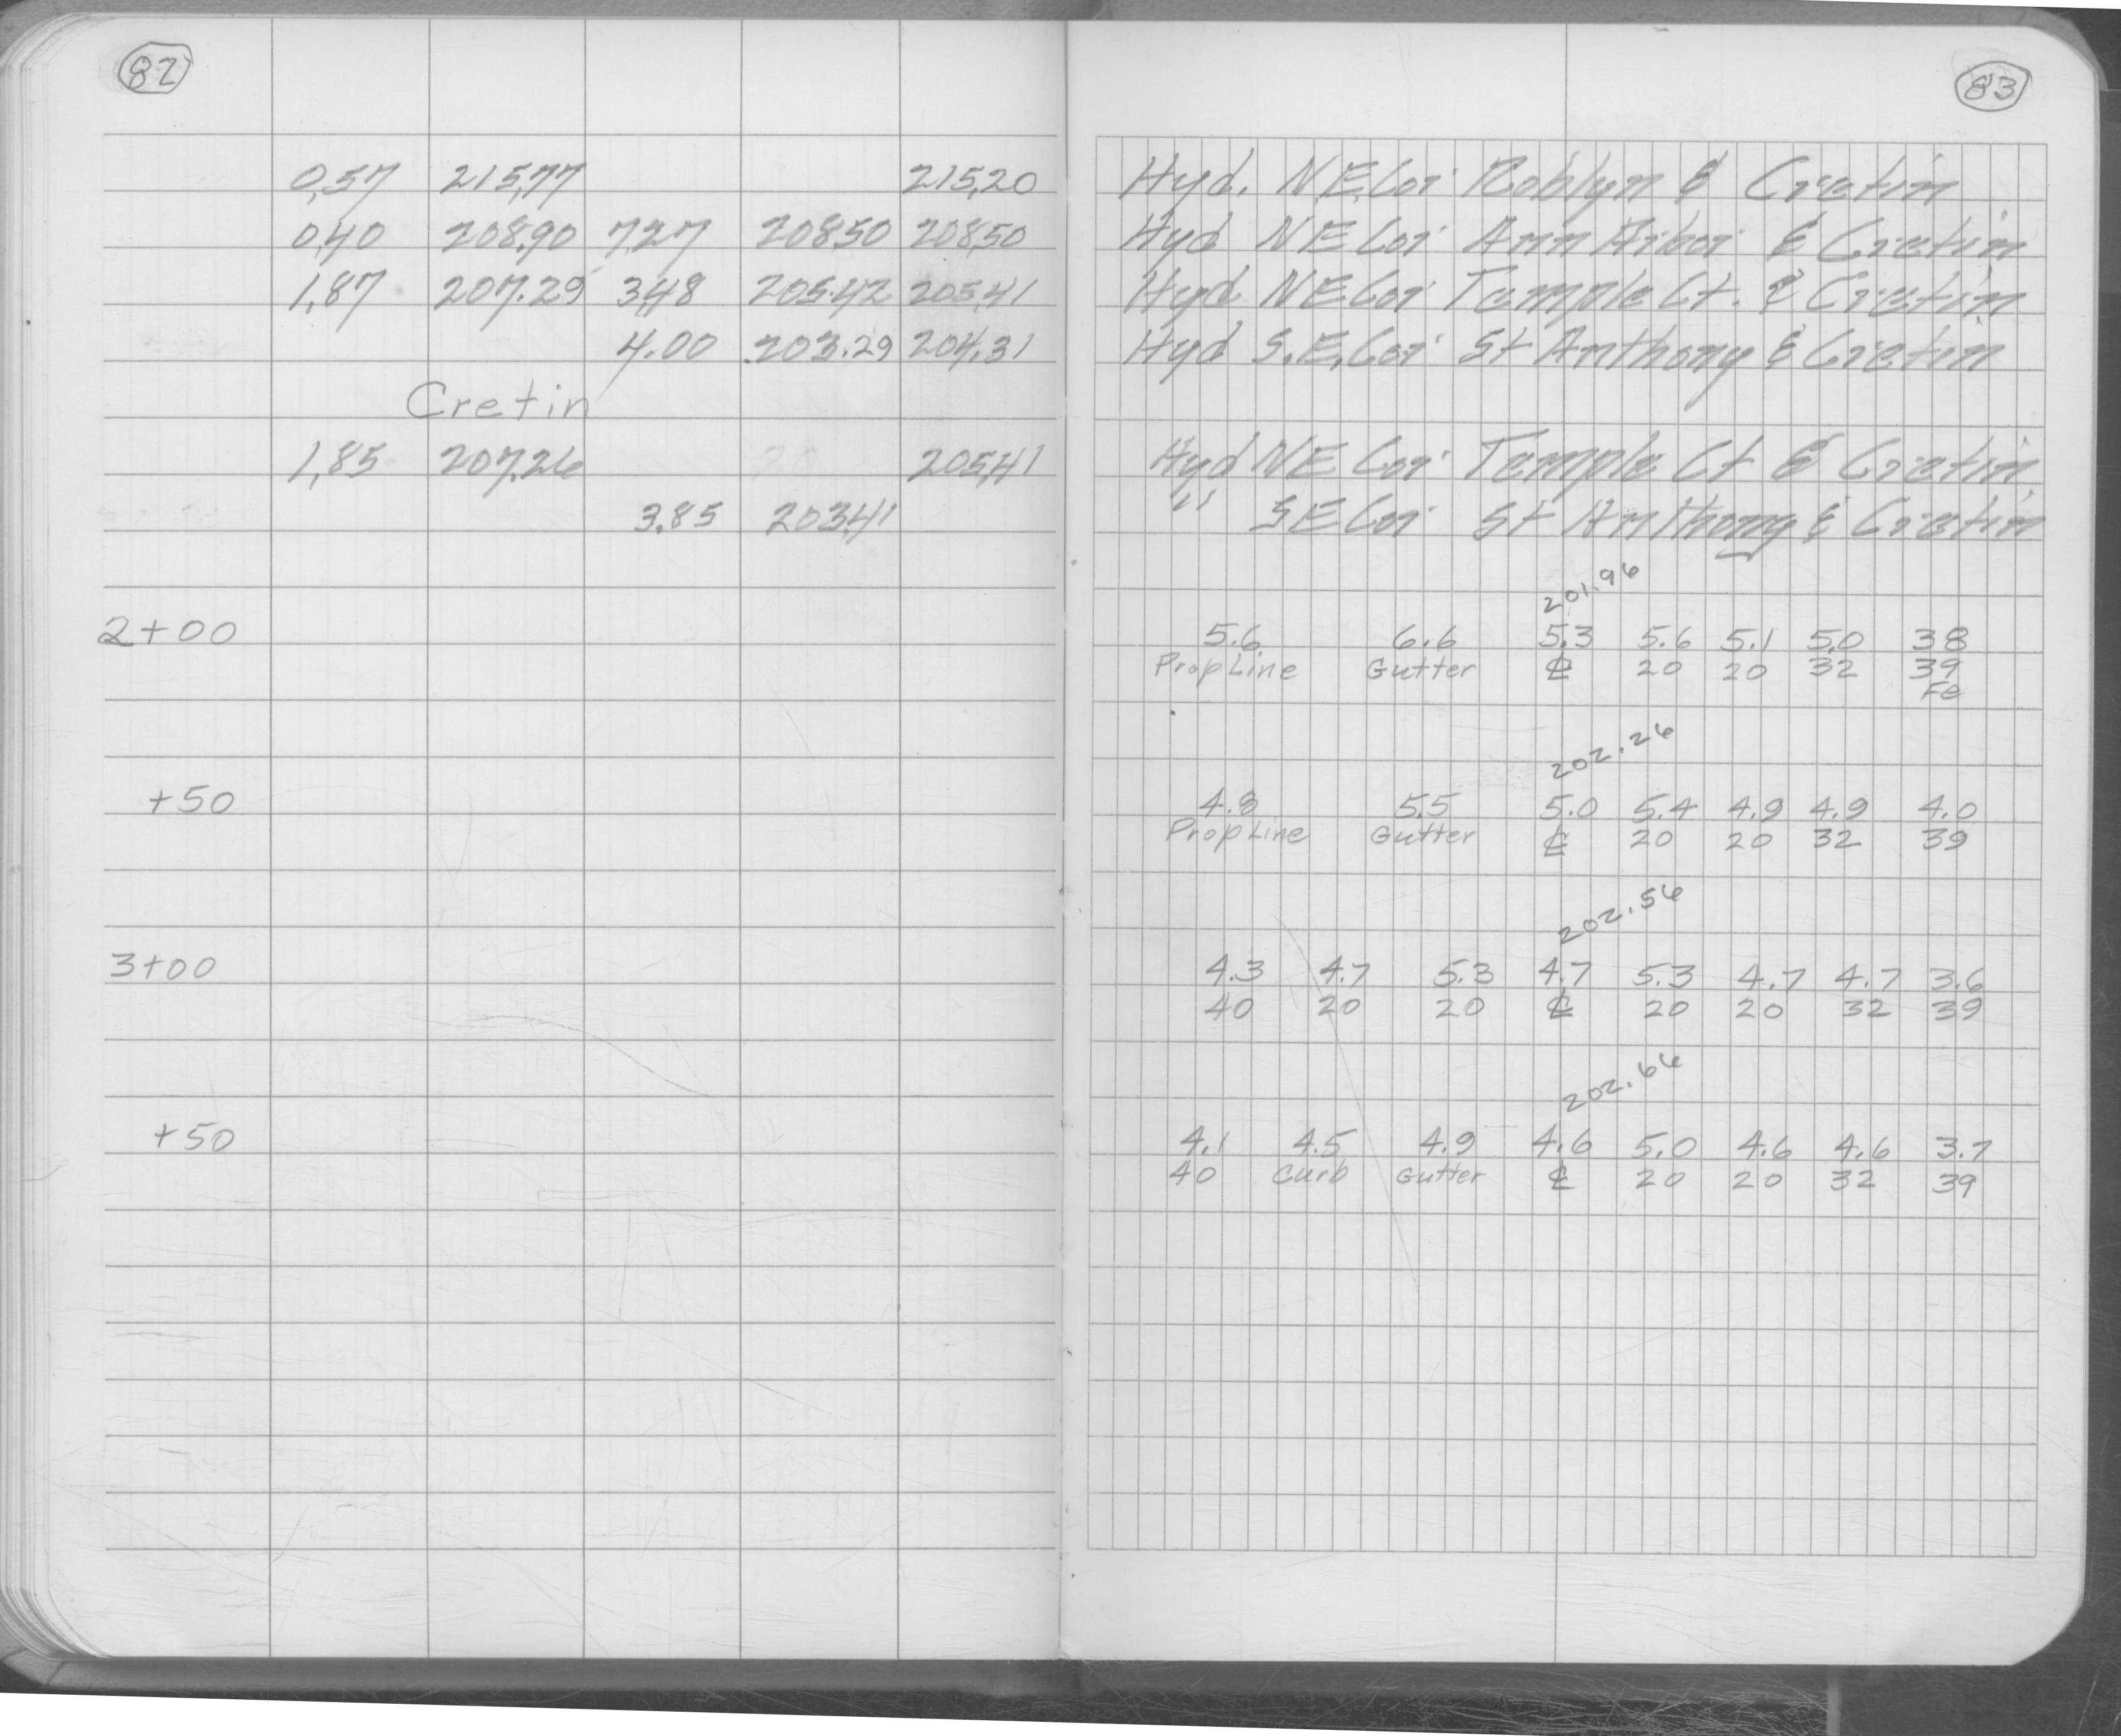 82
0.57 215.77 215.20
0.40 208.90 7.27 208.50 208.50
1.87 207.29 3.48 205.42 205.41
4.00 203.29 204.31
Cretin
1.85 207.26 205.41
3.85 203.41
2+00
+50
3+00
+50
83
Hyd. N.E. Cor Roblyn & Cretin
Hyd NE Cor Ann Arbor & Cretin
Hyd NE Cor Temple Ct. & Cretin
Hyd S.E. Cor St Anthony & Cretin
Hyd NE Cor Temple Ct & Cretin
" SE Cor St Anthony & Cretin
201.96
5.6 6.6 5.3 5.6 5.1 5.0 3.8
Prop Line Gutter ℄ 20 20 32 39
Fe
202.26
4.8 5.5 5.0 5.4 4.9 4.9 4.0
Prop Line Gutter ℄ 20 20 32 39
202.56
4.3 4.7 5.3 4.7 5.3 4.7 4.7 3.6
40 20 20 ℄ 20 20 32 39
202.66
4.1 4.5 4.9 4.6 5.0 4.6 4.6 3.7
40 Curb Gutter ℄ 20 20 32 39